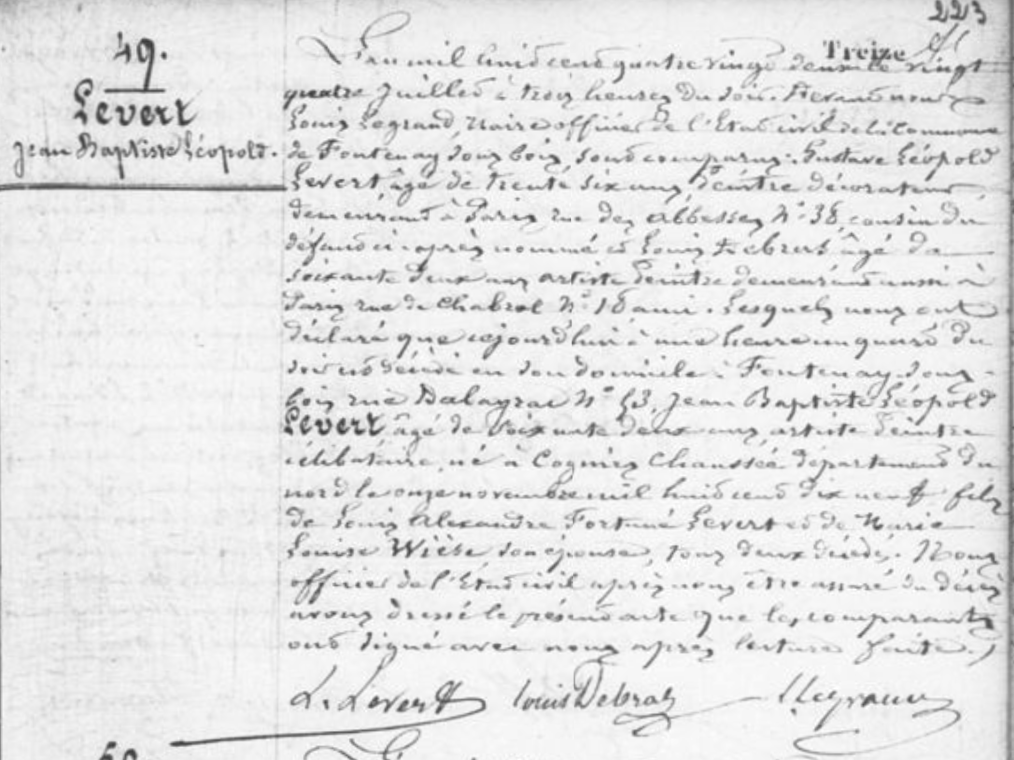 223
Treize
49.
Levert
Jean Baptiste Léopold.
L'an mil huit cent quatre vingt deux le vingt
quatre Juillet à trois heures du soir. Devant nous
Louis Legrand, Maire officier de l'Etat civil de la Commune
de Fontenay sous bois, sont comparus: Gustave Léopold
Levert, âgé de trente six ans, peintre décorateur
demeurant à Paris rue des Abbesses N° 38, cousin du
défunt ci après nommé et Louis Debras âgé de
soixante deux ans artiste peintre demeurant aussi à
Paris rue de Chabrol N° 18 ami. Lesquels nous ont
déclaré que cejourd'hui à une heure un quart du
soir est décédé en son domicile à Fontenay-sous-
bois rue Dalayrac N° 53, Jean Baptiste Léopold
Levert âgé de soixante deux ans, artiste peintre
célibataire, né à Chaussée département du
nord le onze novembre mil huit cent dix neuf fils
de Louis Alexandre Fortuné Levert et de Marie
Louise Wière son épouse, tous deux décédés. Nous
officier de l'Etat civil après nous être assuré du décès
avons dressé le présent acte que les comparants
ont signé avec nous après lecture faite.
L. Levert Louis Debras L. Legrand
50